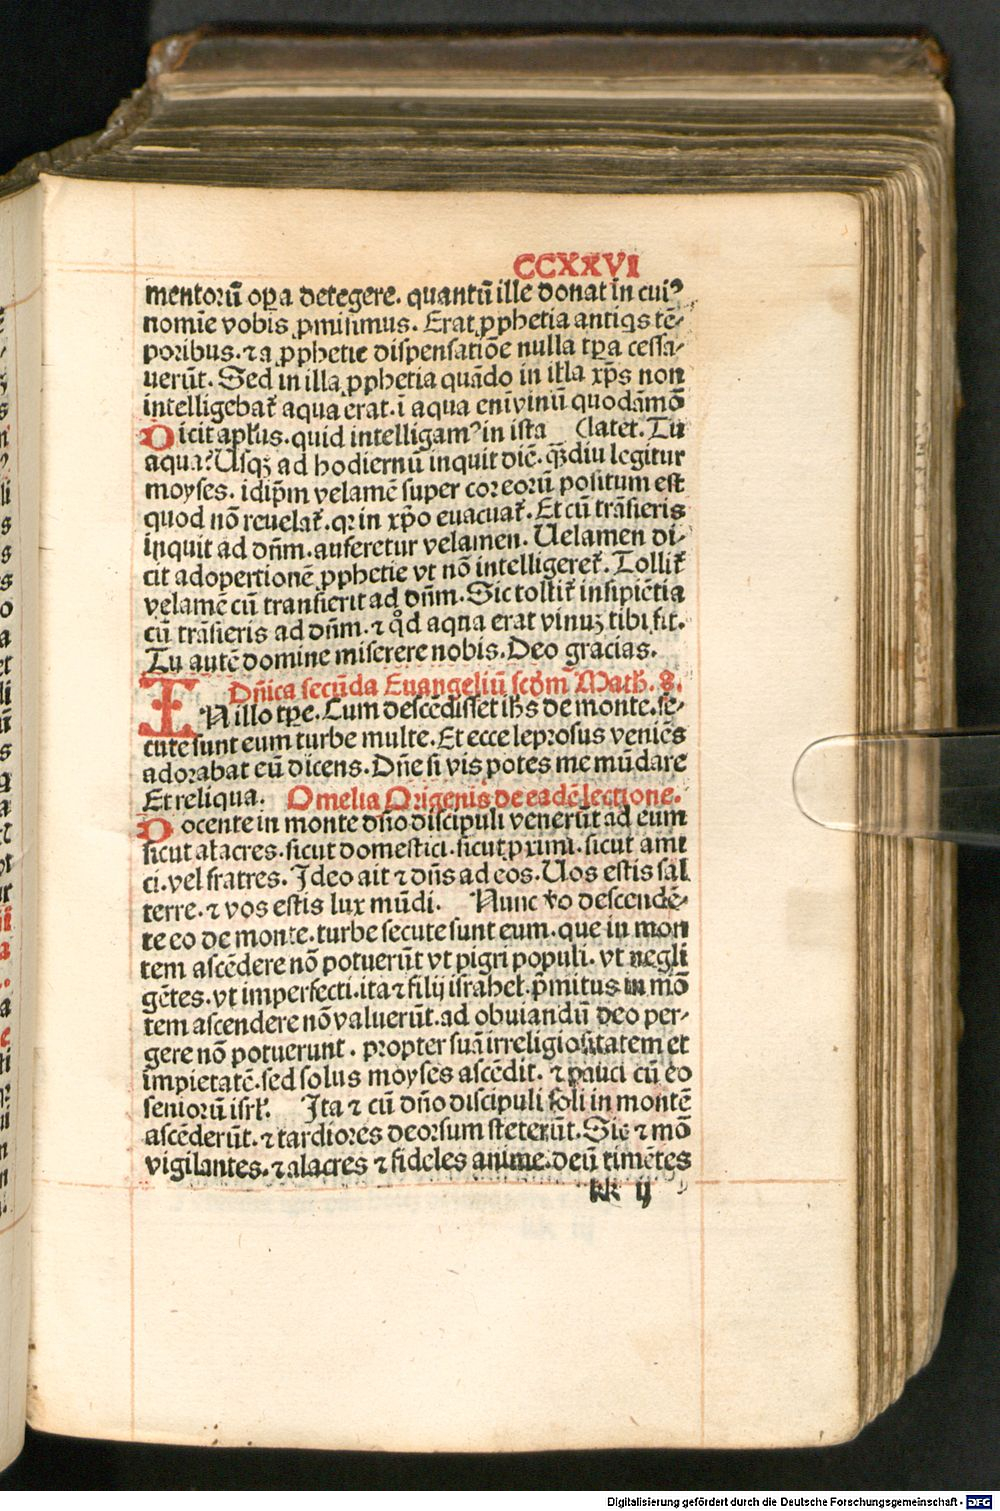 CCXXVI
mentorū oꝑa detegere. quantū ille donat in cuiꝰ
nomīe vobis ꝓmisimus. Erat ꝓphetia antiq̄s tē-
poribus. ⁊ a ꝓphetie dispensatiōe nulla tꝑa cessa-
uerūt. Sed in illa ꝓphetia quādo in illa xp̄s non
intelligebat᷑ aqua erat. ī aqua enī vinū quodāmō
Dicit apłus. quid intelligamꝰ in ista (latet. Tu
aqua? Usqꝫ ad hodiernū inquit diē. qꝫdiu legitur
moyses. idip̄m velamē super cor eorū positum est
quod nō reuelat᷑. qꝛ in xp̄o euacuat᷑. Et cū trāsieris
inquit ad dn̄m. auferetur velamen. Uelamen di-
cit adopertionē ꝓphetie vt nō intelligeret᷑. Tollit᷑
velamē cū transierit ad dn̄m. Sic tollit᷑ insipiētia
cū trāsieris ad dn̄m. ⁊ qd̓ aqua erat vinuꝫ tibi fit.
Tu autē domine miserere nobis. Deo gracias.
Dn̄ica secūda Euangeliū scd̓m Math. 8.
IN illo tꝑe. Cum descēdisset ih̄s de monte. se-
cute sunt eum turbe multe. Et ecce leprosus veniēs
adorabat eū dicens. Dn̄e si vis potes me mūdare
Et reliqua. Omelia Origenis de eadē lectione.
Docente in monte dn̄o discipuli venerūt ad eum
sicut alacres. sicut domestici. sicut ꝓximi. sicut ami
ci. vel fratres. Ideo ait ⁊ dn̄s ad eos. Uos estis sal
terre. ⁊ vos estis lux mūdi. Nunc v̓o descendē-
te eo de monte. turbe secute sunt eum. que in mon
tem ascēdere nō potuerūt vt pigri populi. vt negli
gētes. vt imperfecti. ita ⁊ filij israhel. p̄mitus in mō
tem ascendere nō valuerūt. ad obuiandū deo per-
gere nō potuerunt. propter suā irreligiositatem et
impietatē. sed solus moyses ascēdit. ⁊ pauci cū eo
seniorū isrł. Ita ⁊ cū dn̄o discipuli soli in montē
ascēderūt. ⁊ tardiores deorsum steterūt. Sic ⁊ mō
vigilantes. ⁊ alacres ⁊ fideles anime. deū timētes
kk ij
Digitalisierung gefördert durch die Deutsche Forschungsgemeinschaft - DFG